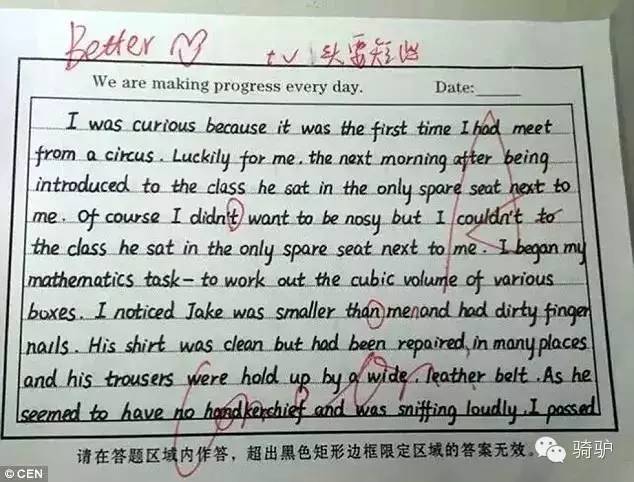 Better
tv 头要短出
We are making progress every day. Date:
I was curious because it was the first time I had meet
from a circus. Luckily for me. the next morning after being
introduced to the class he sat in the only spare seat next to
me. Of course I didn't want to be nosy but I couldn't to
the class he sat in the only spare seat next to me. I began my
mathematics task- to work out the cubic volume of various
boxes. I noticed Jake was smaller than men and had dirty finger
nails. His shirt was clean but had been repaired, in many places
and his trousers were hold up by a wide. leather belt. As he
seemed to have no handkerchief and was sniffing loudly. I passed
请在答题区域内作答，超出黑色矩形边框限定区域的答案无效。
骑驴
© CEN